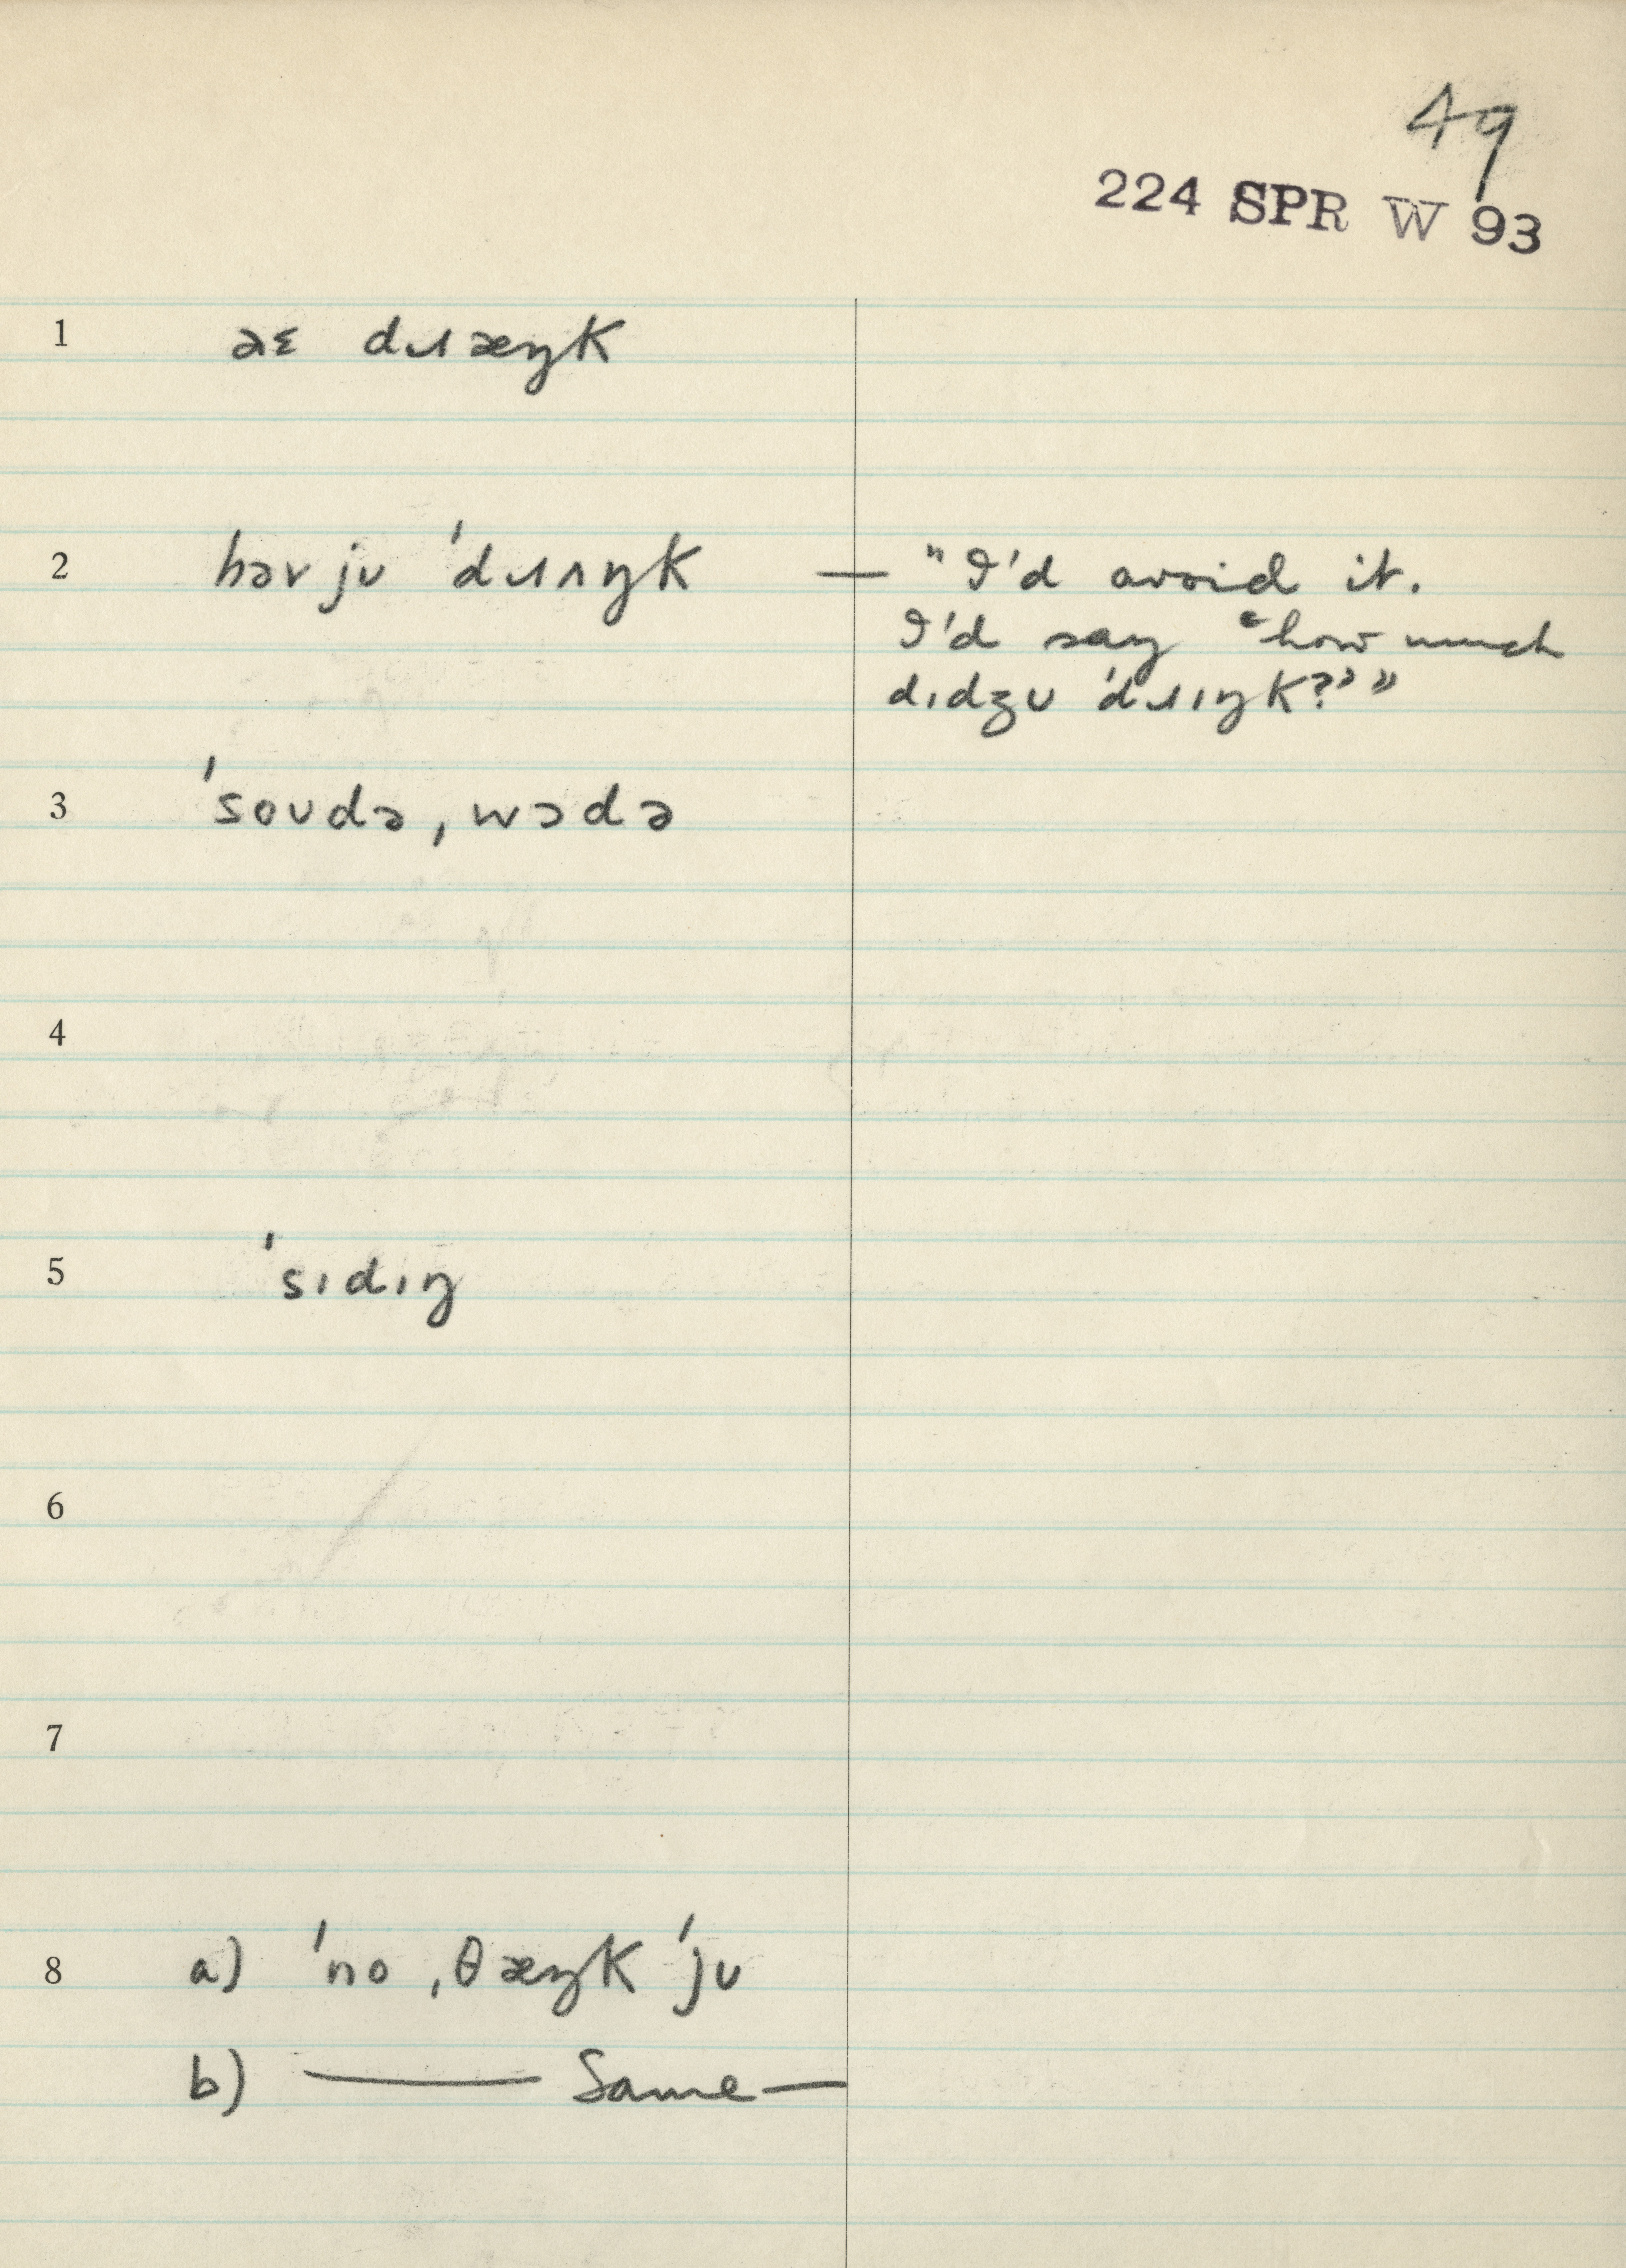 49
224 SPR W 93
1 aɛ dɹæŋk
2 həv ju 'dɹʌŋk — "I'd avoid it.
I'd say "how much
dɪdʒʊ 'dɹɪŋk?" "
3 'soʊdə, wɔdə
4
5 'sɪdɪŋ
6
7
8 a) 'no ,θæŋk 'ju
b) — Same —